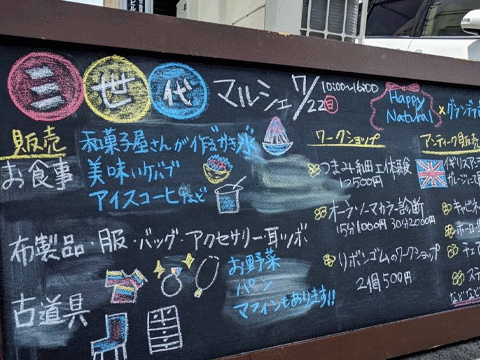 三世代マルシェ 7/22(日) 10:00~16:00
Happy Natural ×
販売
お食事
和菓子屋さんが作るかき氷
美味いケバブ
アイスコーヒーなど
布製品・服・バッグ・アクセサリー・耳ツボ
古道具
お野菜
パン
マフィンもあります!!
ワークショップ
つまみ細工体験
1500円
オーラソーマカラー診断
15分1000円 30分2000円
リボンゴムのワークショップ
2個500円
アンティーク販売
イギリスアン
キャビネ
チェ
など